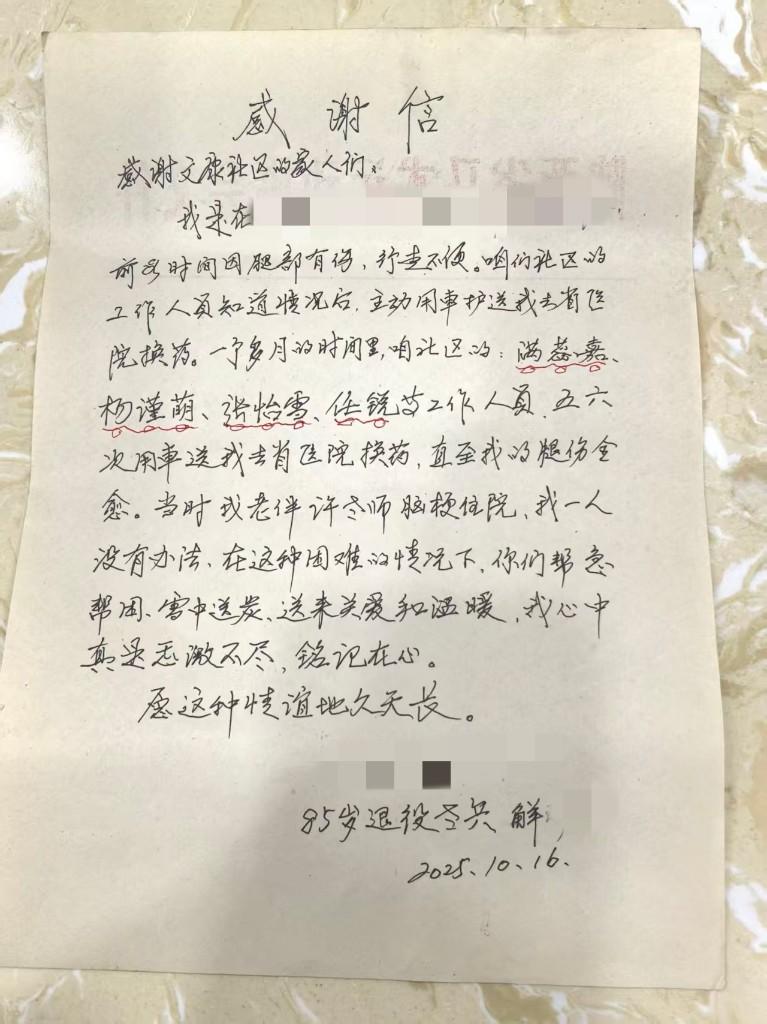 感谢信
感谢文康社区的家人们：
我是在
前些时间因腿部有伤，行走不便。咱们社区的
工作人员知道情况后，主动用车护送我去省医
院换药。一个多月的时间里，咱社区的：满蕊嘉、
杨谨萌、张怡雪、任锐等工作人员，五六
次用车送我去省医院换药，直至我的腿伤全
愈。当时我老伴许老师脑梗住院，我一人
没有办法、在这种困难的情况下，你们帮急
帮困、雪中送炭、送来关爱和温暖，我心中
真是感激不尽，铭记在心。
愿这种情谊地久天长。
85岁退役老兵 解
2025.10.16.